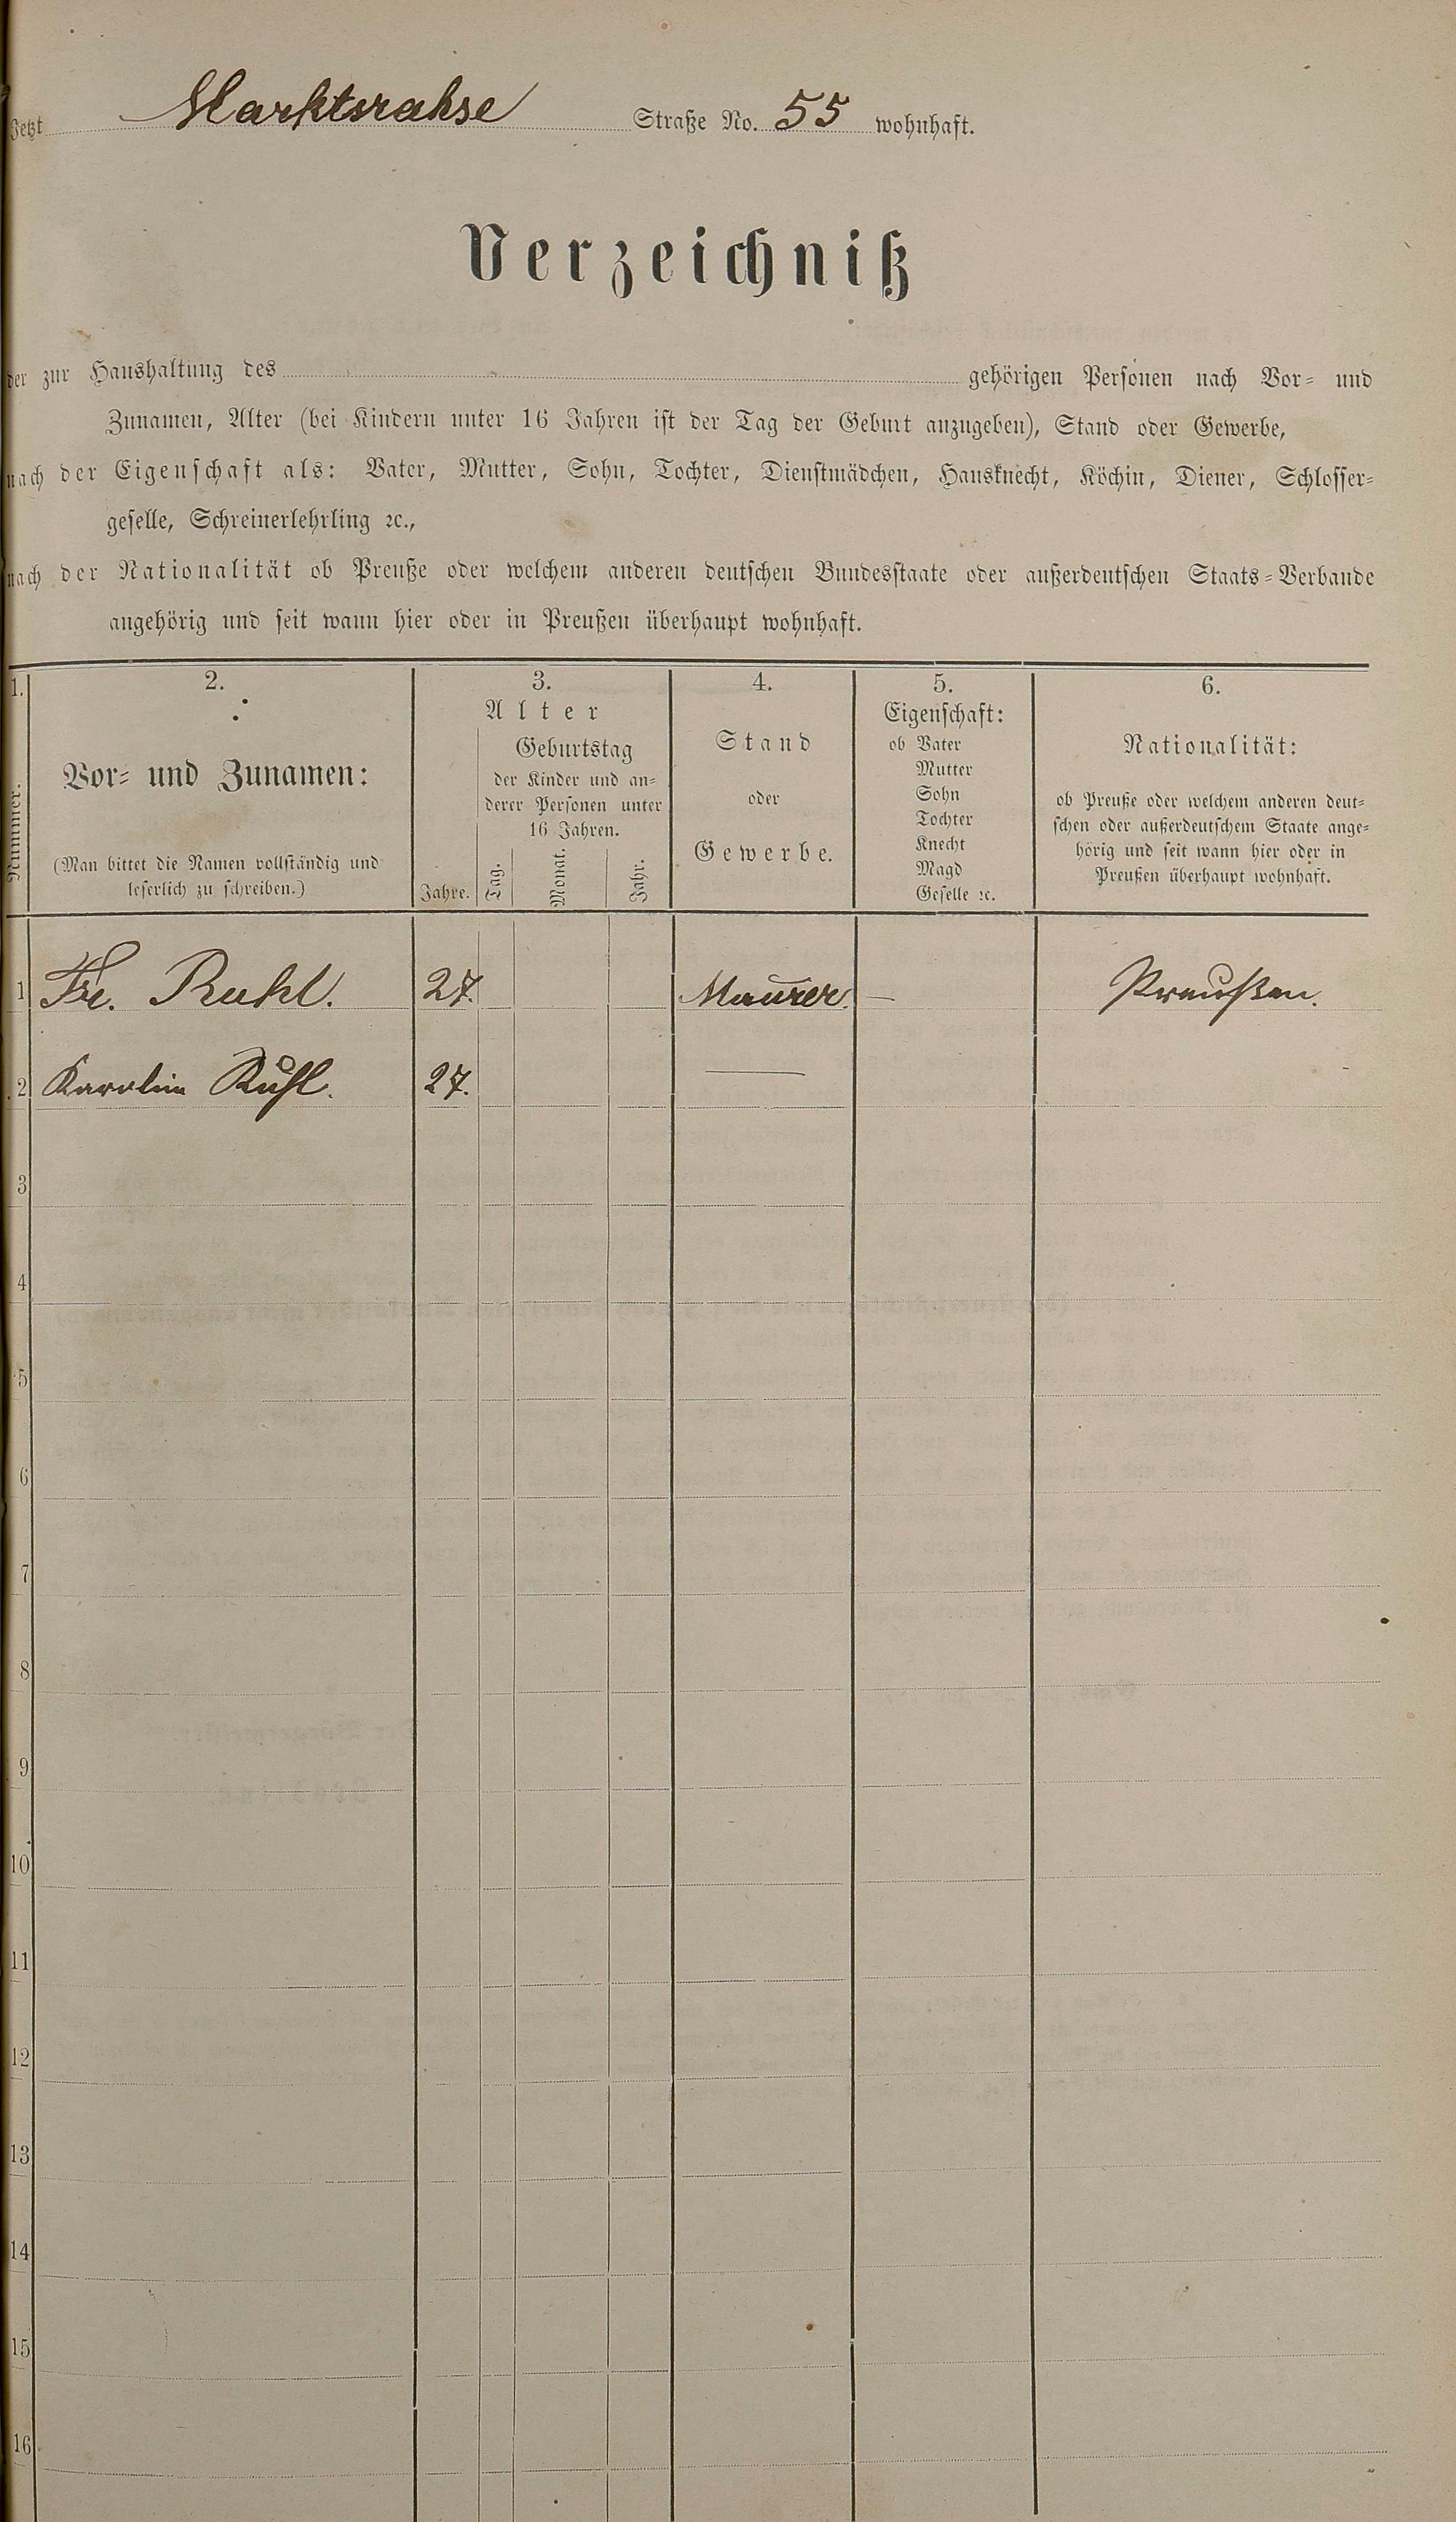 Jetzt Marktsrahse Straße No. 55 wohnhaft.
Verzeichniß
der zur Haushaltung des gehörigen Personen nach Vor- und
Zunamen, Alter (bei Kindern unter 16 Jahren ist der Tag der Geburt anzugeben), Stand oder Gewerbe,
nach der Eigenschaft als: Vater, Mutter, Sohn, Tochter, Dienstmädchen, Hausknecht, Köchin, Diener, Schlosser-
geselle, Schreinerlehrling ꝛc.,
nach der Nationalität ob Preuße oder welchem anderen deutschen Bundesstaate oder außerdeutschen Staats-Verbande
angehörig und seit wann hier oder in Preußen überhaupt wohnhaft.
1. 2. 3. 4. 5. 6.
Nummer.
Vor- und Zunamen:
(Man bittet die Namen vollständig und
leserlich zu schreiben.)
Alter
Jahre.
Geburtstag
der Kinder und an-
derer Personen unter
16 Jahren.
Tag. Monat. Jahr.
Stand
oder
Gewerbe.
Eigenschaft:
ob Vater
Mutter
Sohn
Tochter
Knecht
Magd
Geselle ꝛc.
Nationalität:
ob Preuße oder welchem anderen deut-
schen oder außerdeutschem Staate ange-
hörig und seit wann hier oder in
Preußen überhaupt wohnhaft.
1 Fr. Ruhl. 27. Maurer. — Preußen.
2 Karolin Ruhl. 27. —
3
4
5
6
7
8
9
10
11
12
13
14
15
16